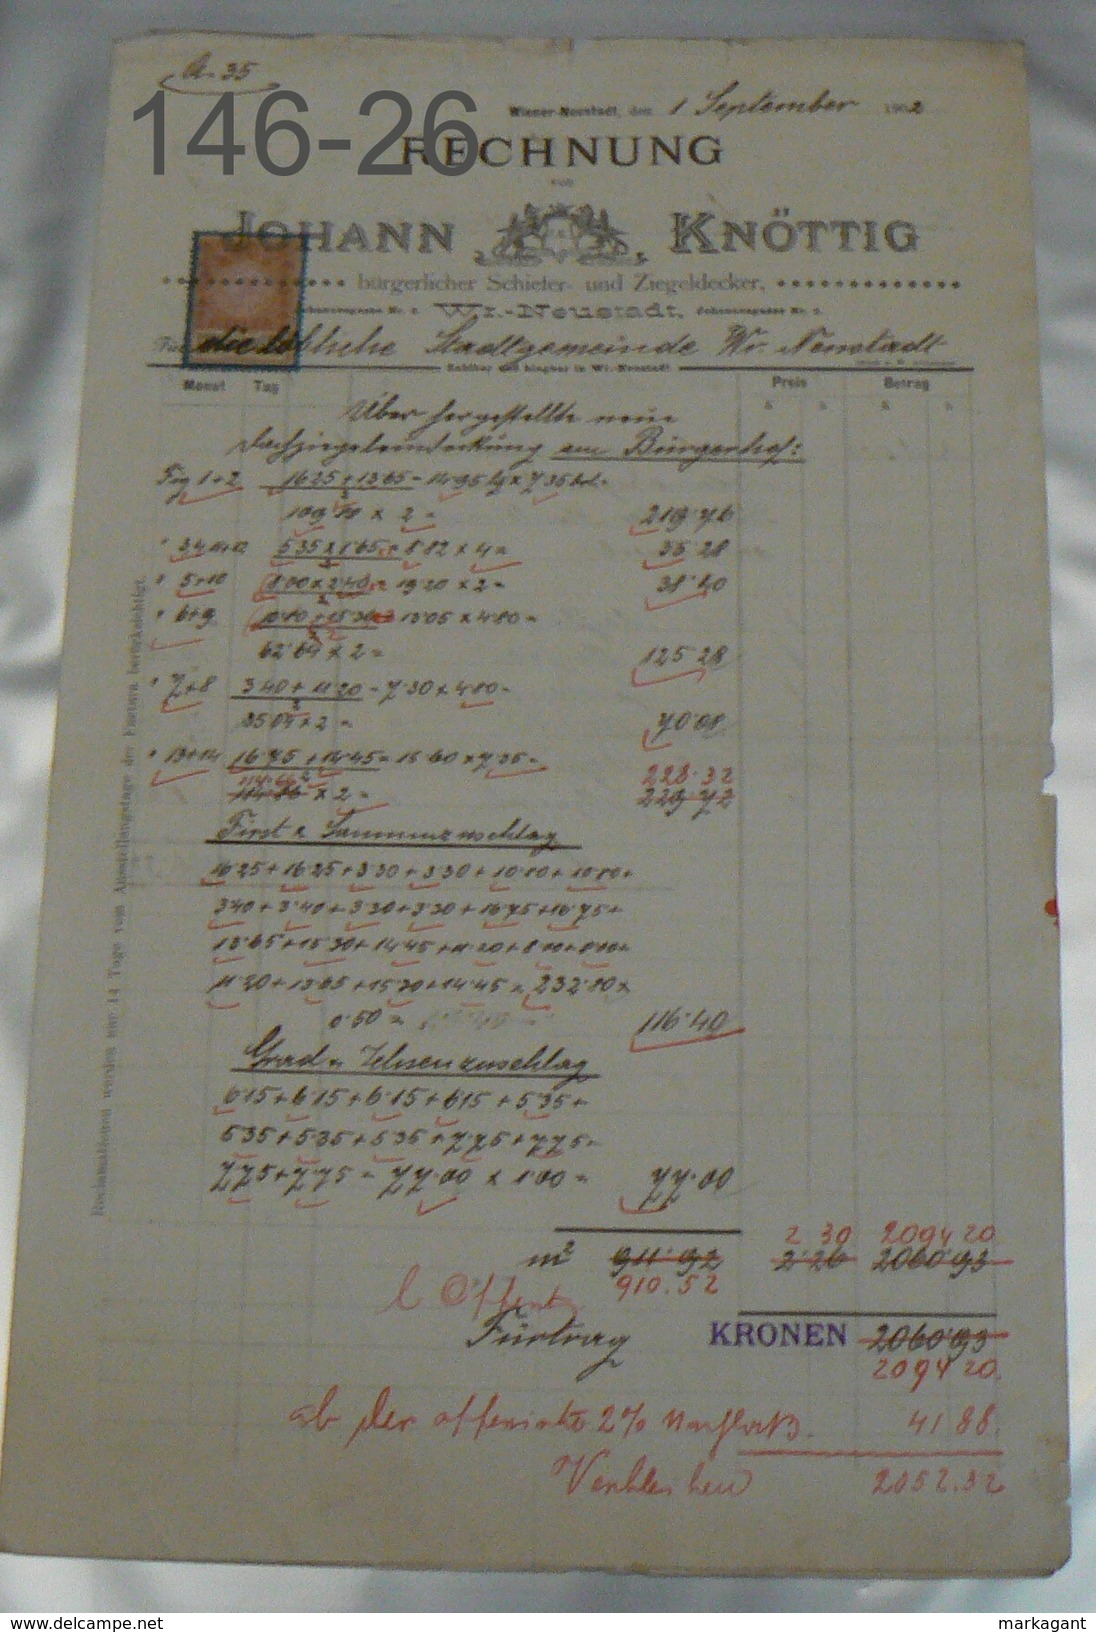 A. 35
146-26
Wiener-Neustadt, den 1 September 1902
RECHNUNG
von
JOHANN KNÖTTIG
bürgerlicher Schiefer- und Ziegeldecker,
Wr.-Neustadt, Johannesgasse Nr. 2.
Für die löbliche Stadtgemeinde Wr. Neustadt
Zahlbar und klagbar in Wr.-Neustadt
Monat Tag Preis Betrag
Über hergestellte neue
Dachziegeleindeckung am Bürgerhof:
Fig 1+2 16·25 + 13·65 = 14·95 × 7·35
2
109·88 × 2 = 219·76
5·35 × 1·65 = 8·82 × 4 = 35·28
" 5+10 8·00 × 2·40 = 19·20 × 2 = 38·40
" 6+9 10·80 + 15·30 = 13·05 × 4·80 =
2
62·64 × 2 = 125·28
" 7+8 3·40 + 11·20 = 7·30 × 4·80 =
2
35·04 × 2 = 70·08
" 13+14 16·75 + 14·45 = 15·60 × 7·35 =
228·32
114·86 × 2 = 229·72
16·25 + 16·25 + 3·30 + 3·30 + 10·80 + 10·80 +
3·40 + 3·40 + 3·30 + 3·30 + 16·75 + 16·75 +
13·65 + 15·30 + 14·45 + 11·20 + 8·00 + 8·00 +
11·20 + 13·65 + 15·30 + 14·45 = 232·80 ×
0·50 = 116·40
6·15 + 6·15 + 6·15 + 6·15 + 5·35 +
5·35 + 5·35 + 5·35 + 7·75 + 7·75 +
7·75 + 7·75 = 77·00 × 1·00 = 77·00
2 30 2094 20
m² 911·92 2·26 2060·93
910.52
Fürtrag KRONEN 2060·93
2094 20
ab der offerirte 2% Nachlaß 41 88
2052.32
Rechnungen werden nur 14 Tage vom Ausstellungstage der Factura berücksichtigt.
www.delcampe.net
markagant